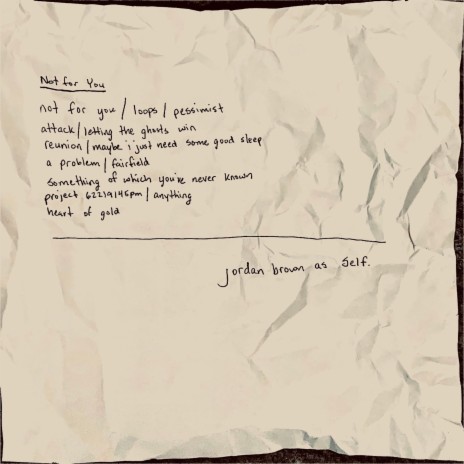 Not for You
not for you / loops / pessimist
attack / letting the ghosts win
reunion / maybe i just need some good sleep
a problem / fairfield
something of which you're never known
project 62219145pm / anything
heart of gold
jordan brown as self.